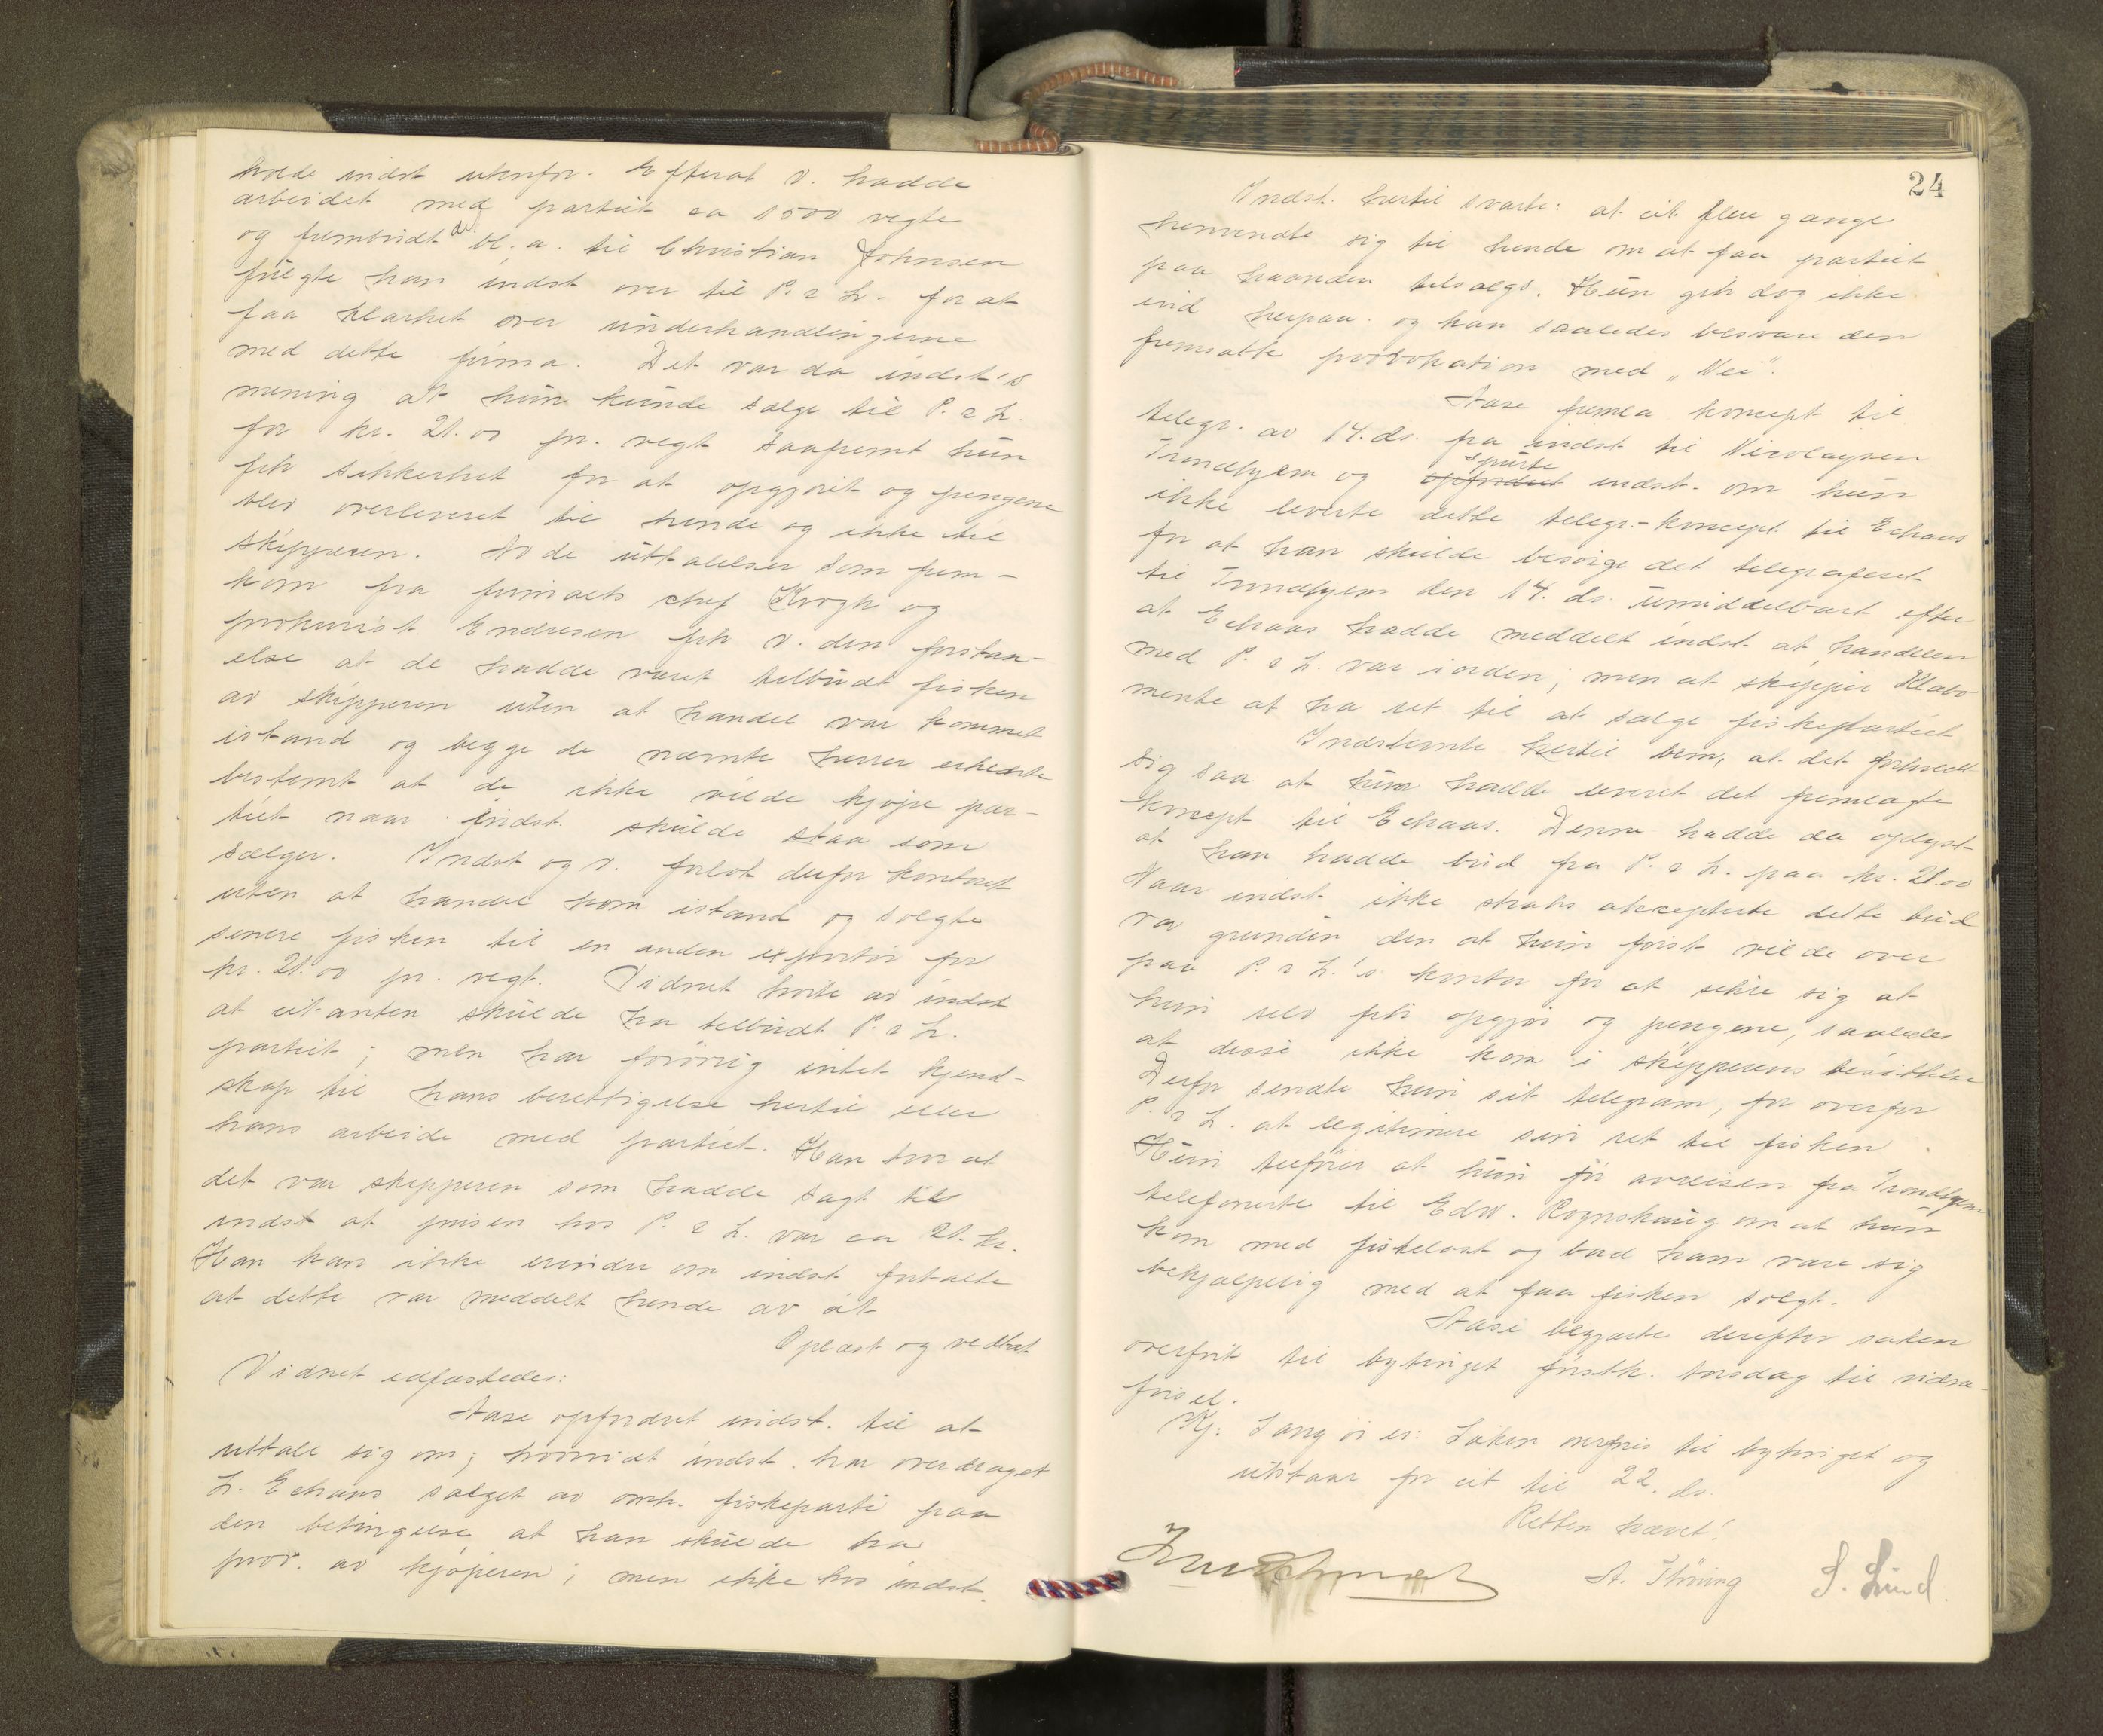 holde indst utenfor. Efterat v. hadde
arbeidet med partiet ca 1500 vegte
og frembudt det bl.a. til Christian Johnsen
fulgte han indst over til P. & L. for at
faa klarhet over underhandlingerne
med dette firma. Det var da indst's
mening at hun kunde sælge til P. & L.
for kr. 21.00 pr. vegt saafremt hun
fik sikkerhet for at opgjøret og pengene
blev overleveret til hende og ikke til
skipperen. Av de uttalelser som frem-
kom fra firmaets chef Krogh og
prokurist Endresen fik v. den forstaa-
else at de hadde været tilbudt fisken
av skipperen uten at handel var kommet
istand og begge de nævnte herrer erklærte
bestemt at de ikke vilde kjøpe par-
tiet naar indst. skulde staa som
sælger. Indst og v. forlot derfor kontoret
uten at handel kom istand og solgte
senere fisken til en anden exportør for
kr. 21.00 pr. vegt. Vidnet hørte av indst
at citanten skulde ha tilbudt P. & L.
partiet; men har forøvrig intet kjend-
skap til hans berettigelse hertil eller
hans arbeide med partiet. Han tror at
det var skipperen som hadde sagt til
indst at prisen hos P. & L. var ca 21. kr.
Han kan ikke erindre om indst fortalte
at dette var meddelt hende av cit
Oplæst og vedtat
Vidnet edfæstedes:
Aase opfordret indst. til at
uttale sig om; hvorvidt indst. har overdraget
L. Echaus salget av omh. fiskeparti paa
den betingelse at han skulde ha
prov. av kjøperen; men ikke hos indst.
24
Indst. hertil svarte: at cit flere gange
henvendte sig til hende om at faa partiet
paa haanden tilsalgs. Hun gik dog ikke
ind herpaa og kan saaledes besvare den
fremsatte provokation med „Nei".
Aase fremla koncept til
telegr. av 14. ds. fra indst til Nicolaysen
Trondhjem og opfordret spurte indst. om hun
ikke leverte dette telegr.-koncept til Echaus
for at han skulde besørge det telegraferet
til Trondhjem den 14. ds. umiddelbart efter
at Echaus hadde meddelt indst at handelen
med P. & L. var iorden; men at skipper Klabo
mente at ha ret til at sælge fiskepartiet
Indstevnte hertil bem, at det forholdt
sig saa at hun hadde leveret det fremlagte
koncept til Echaus. Denne hadde da oplyst
at han hadde bud fra P. & L. paa kr. 21.00
Naar indst ikke straks akcepterte dette bud
var grunden den at hun først vilde over
paa P. & L.'s kontor for at sikre sig at
hun selv fik opgjør og pengene, saaledes
at disse ikke kom i skipperens besittelse
Derfor sendte hun sit telegram, for overfor
P. & L. at legitimere sin ret til fisken.
Hun tilføier at hun før avreisen fra Trondhjem
telefonerte til Edv. Rognskaug om at hun
kom med fiskelast og bad ham være sig
behjælpelig med at faa fisken solgt.
Aase begjærte derefter saken
overført til bytinget førstk. torsdag til vidne-
førsel.
Kj: Saken overføres til bytinget og
utstaar for cit til 22. ds.
Retten hævet!
A. Thoring S. Lund.